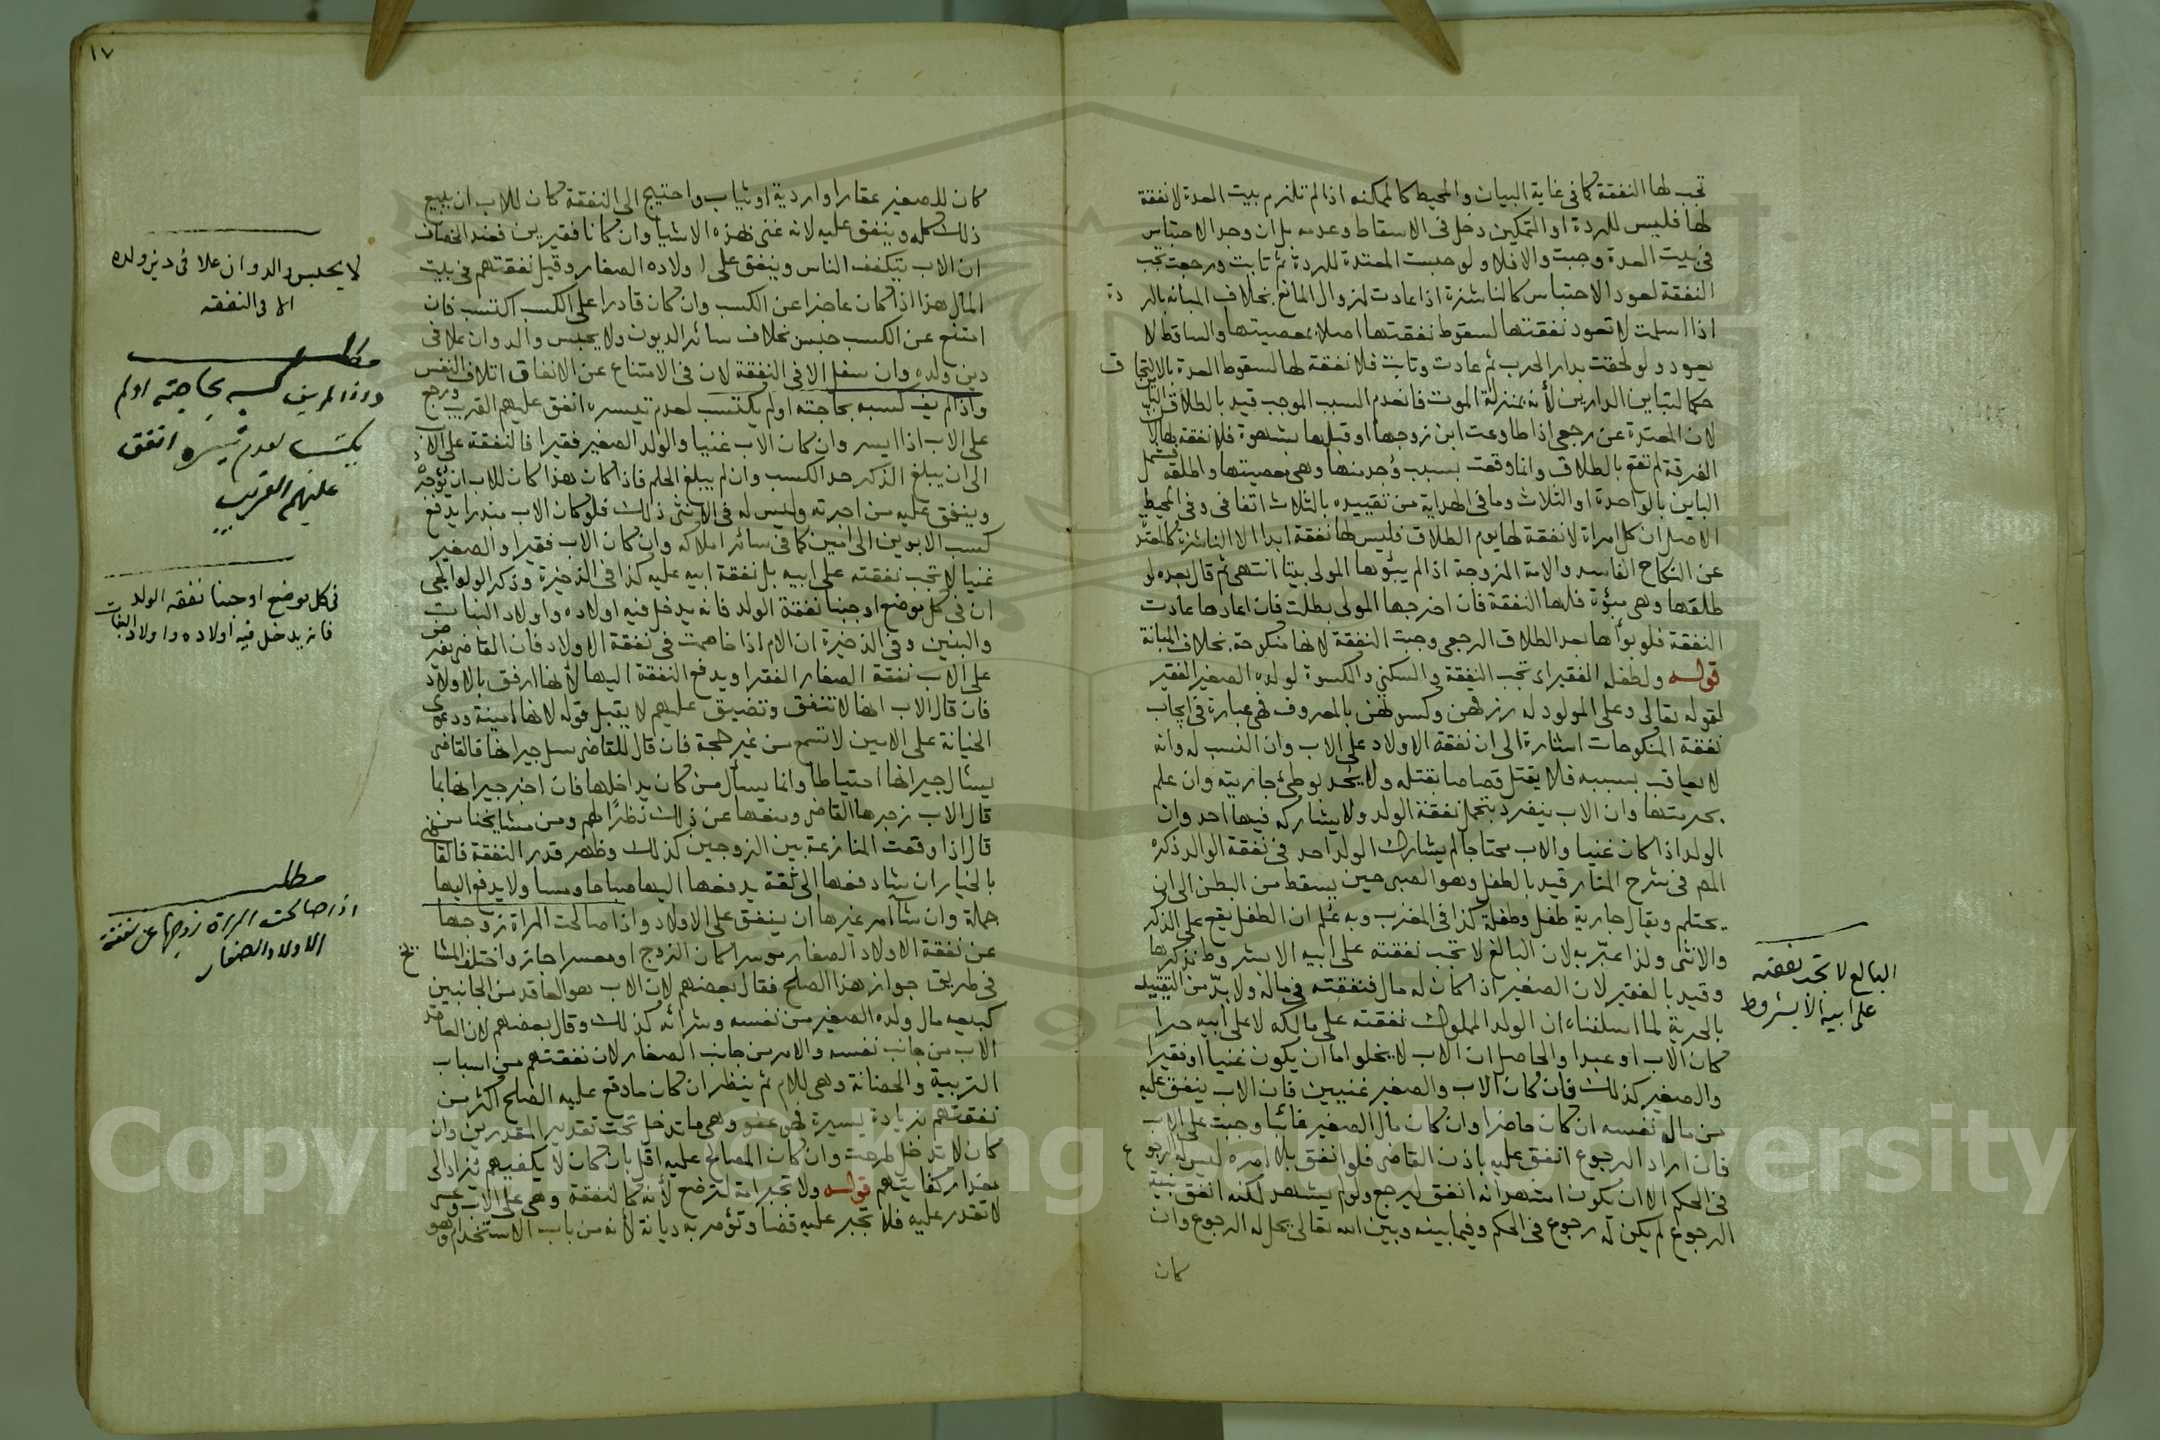 تجب لها النفقة كما في غاية البيان والمحيط كالممكنه اذا لم تلزم بيت العدة لا نفقة
لها فليس للردة او التمكين دخل في الاسقاط وعدمه بل ان وجد الاحتباس
في بيت العدة وجبت والا فلا ولو حبست المعتدة للردة ثم تابت ورجعت تجب
النفقة لعود الاحتباس كالناشزة اذا عادت لزوال المانع بخلاف المبانه بالردة
اذا اسلمت لا تعود نفقتها لسقوط نفقتها اصلا بمعصيتها والساقط لا
يعود ولو لحقت بدار الحرب ثم عادت وتابت فلا نفقة لها لسقوط العدة بالالتحاق
حكما لتباين الدارين لأنه بمنزلة الموت فانعدم السبب الموجب قيد بالطلاق
لان المعتدة عن رجعي اذا طاوعت ابن زوجها او قبلها بشهوة فلا نفقة لها لان
الفرقة لم تقع بالطلاق وانما وقعت بسبب وجد منها وهي معصيتها واطلقه فشمل
الباين بالواحدة او الثلاث وما في الهداية من تقييده بالثلاث اتفاقي وفي المحيط
الاصل ان كل امراة لا نفقة لها يوم الطلاق فليس لها نفقة ابدا الا الناشزة كالمعتدة
عن النكاح الفاسد والامة المزوجة اذا لم يبوئها المولى بيتا انتهى ثم قال بعده لو
طلقها وهي مبوئة فلها النفقة فان اخرجها المولى بطلت فان اعادها عادت
النفقة فلو بوأها بعد الطلاق الرجعي وجبت النفقة لانها منكوحة بخلاف المبانة
قوله ولطفله الفقير اي تجب النفقة والسكنى والكسوة لولده الصغير الفقير
لقوله تعالى وعلى المولود له رزقهن وكسوتهن بالمعروف فهي عبارة في ايجاب
نفقة المنكوحات اشارة الى ان نفقة الاولاد على الاب وان النسب له وانه
لا يعاقب بسببه فلا يقتل قصاصا بقتله ولا يحد بوطئ جاريته وان علم
بحرمتها وان الاب ينفرد بتحمل نفقة الولد ولا يشاركه فيها احد وان
الولد اذا كان غنيا والاب محتاجا لم يشارك الولد احد في نفقة الوالد ذكره
المص في شرح المنار قيد بالطفل وهو الصبي حين يسقط من البطن الى ان
يحتلم ويقال جارية طفل وطفلة كذا في المغرب وبه علم ان الطفل يقع على الذكر
والانثى ولذا عبر به لان البالغ لا تجب نفقته على ابيه الا بشروط نذكرها
وقيد بالفقير لان الصغير اذا كان له مال فنفقته في ماله ولا بد من التقييد
بالحرية لما اسلفناه ان الولد المملوك نفقته على مالكه لا على ابيه حرا
كان الاب او عبدا والحاصل ان الاب لا يخلوا ما ان يكون غنيا او فقيرا
والصغير كذلك فان كان الاب والصغير غنيين فان الاب ينفق عليه
من مال نفسه ان كان حاضرا وان كان مال الصغير غائبا وجبت على الاب
فان اراد الرجوع انفق عليه باذن القاضي فلو انفق بلا امره ليس له الرجوع
في الحكم الا ان يكون اشهد انه انفق ليرجع ولو لم يشهد لكنه انفق بنية
الرجوع لم يكن له رجوع في الحكم وفيما بينه وبين الله تعالى يحل له الرجوع وان
كان
البالغ لا تجب نفقته
على ابيه الا بشروط
١٧
كان للصغير عقارا واردية او ثياب واحتيج الى النفقة كان للاب ان يبيع
ذلك كله وينفق عليه لانه غني بهذه الاشيا وان كانا فقيرين فعند الخصاف
ان الاب يتكفف الناس وينفق على اولاده الصغار وقيل نفقتهم في بيت
المال هذا اذا كان عاجزا عن الكسب وان كان قادرا على الكسب اكتسب فان
امتنع عن الكسب حبس بخلاف سائر الديون ولا يحبس والد وان علا في
دين ولده وان سفل الا في النفقة لان في الامتناع عن الانفاق اتلاف النفس
واذا لم يف كسبه بحاجته او لم يكتسب لعدم تيسره انفق عليهم القريب ورجع
على الاب اذا ايسر وان كان الاب غنيا والولد الصغير فقيرا فالنفقة على الاب
الى ان يبلغ الذكر حد الكسب وان لم يبلغ الحلم فاذا كان هذا كان للاب ان يؤجره
وينفق عليه من اجرته وليس له في الانثى ذلك فلو كان الاب مبذرا يدفع
كسب الابوين الى امين كما في سائر املاكه وان كان الاب فقيرا والصغير
غنيا لا تجب نفقته على ابيه بل نفقة ابيه عليه كذا في الذخيرة وذكر الولوالجي
ان في كل موضع اوجبنا نفقة الولد فانه يدخل فيه اولاده واولاد البنات
والبنين وفي الذخيرة ان الام اذا خاصمت في نفقة الاولاد فان القاضي يفرض
على الاب نفقة الصغار الفقرا ويدفع النفقة اليها لأنها ارفق بالاولاد
فان قال الاب انها لا تنفق وتضيق عليهم لا يقبل قوله لانها امينة ودعوى
الخيانة على الامين لا تسمع من غير حجة فان قال للقاضي سل جيرانها فالقاضي
يسأل جيرانها احتياطا وانما يسأل من كان يداخلها فان اخبر جيرانها بما
قال الاب زجرها القاضي ومنعها عن ذلك نظرا لهم ومن مشايخنا من
قال اذا وقعت المنازعة بين الزوجين كذلك وظهر قدر النفقة فالقاضي
بالخيار ان شا دفعها الى ثقة يدفعها اليها صباحا ومسا ولا يدفع اليها
جملة وان شا امر غيرها ان ينفق على الاولاد واذا صالحت المراة زوجها
عن نفقة الاولاد الصغار موسرا كان الزوج او معسرا جاز واختلف المشايخ
في طريق جواز هذا الصلح فقال بعضهم لان الاب هو العاقد من الجانبين
كبيعه مال ولده الصغير من نفسه وشرائه كذلك وقال بعضهم لان العاقد
الاب من جانب نفسه والام من جانب الصغار لان نفقتهم من اسباب
التربية والحضانة وهي للام ثم ينظر ان كان ما وقع عليه الصلح اكثر من
نفقتهم بزيادة يسيرة فهو عفو وهي ما تدخل تحت تقدير المقدرين وان
كان لا تدخل طرحت وان كان المصالح عليه اقل بان كان لا يكفيهم يزاد الى
مقدار كفايتهم قوله ولا تجبر امه لترضع لأنه كالنفقة وهي على الاب وعسى
لا تقدر عليه فلا تجبر عليه قضا وتؤمر به ديانة لأنه من باب الاستخدام وهو
لا يحبس والد وان علا في دين ولده
الا في النفقه
مطلب
واذا لم يف كسبه بحاجته او لم
يكتسب لعدم تيسره انفق
عليهم القريب
في كل موضع اوجبنا نفقه الولد
فانه يدخل فيه اولاده واولاد البنات
مطلب
اذا صالحت المراة زوجها عن نفقة
الاولاد الصغار
Copyright © King Saud University